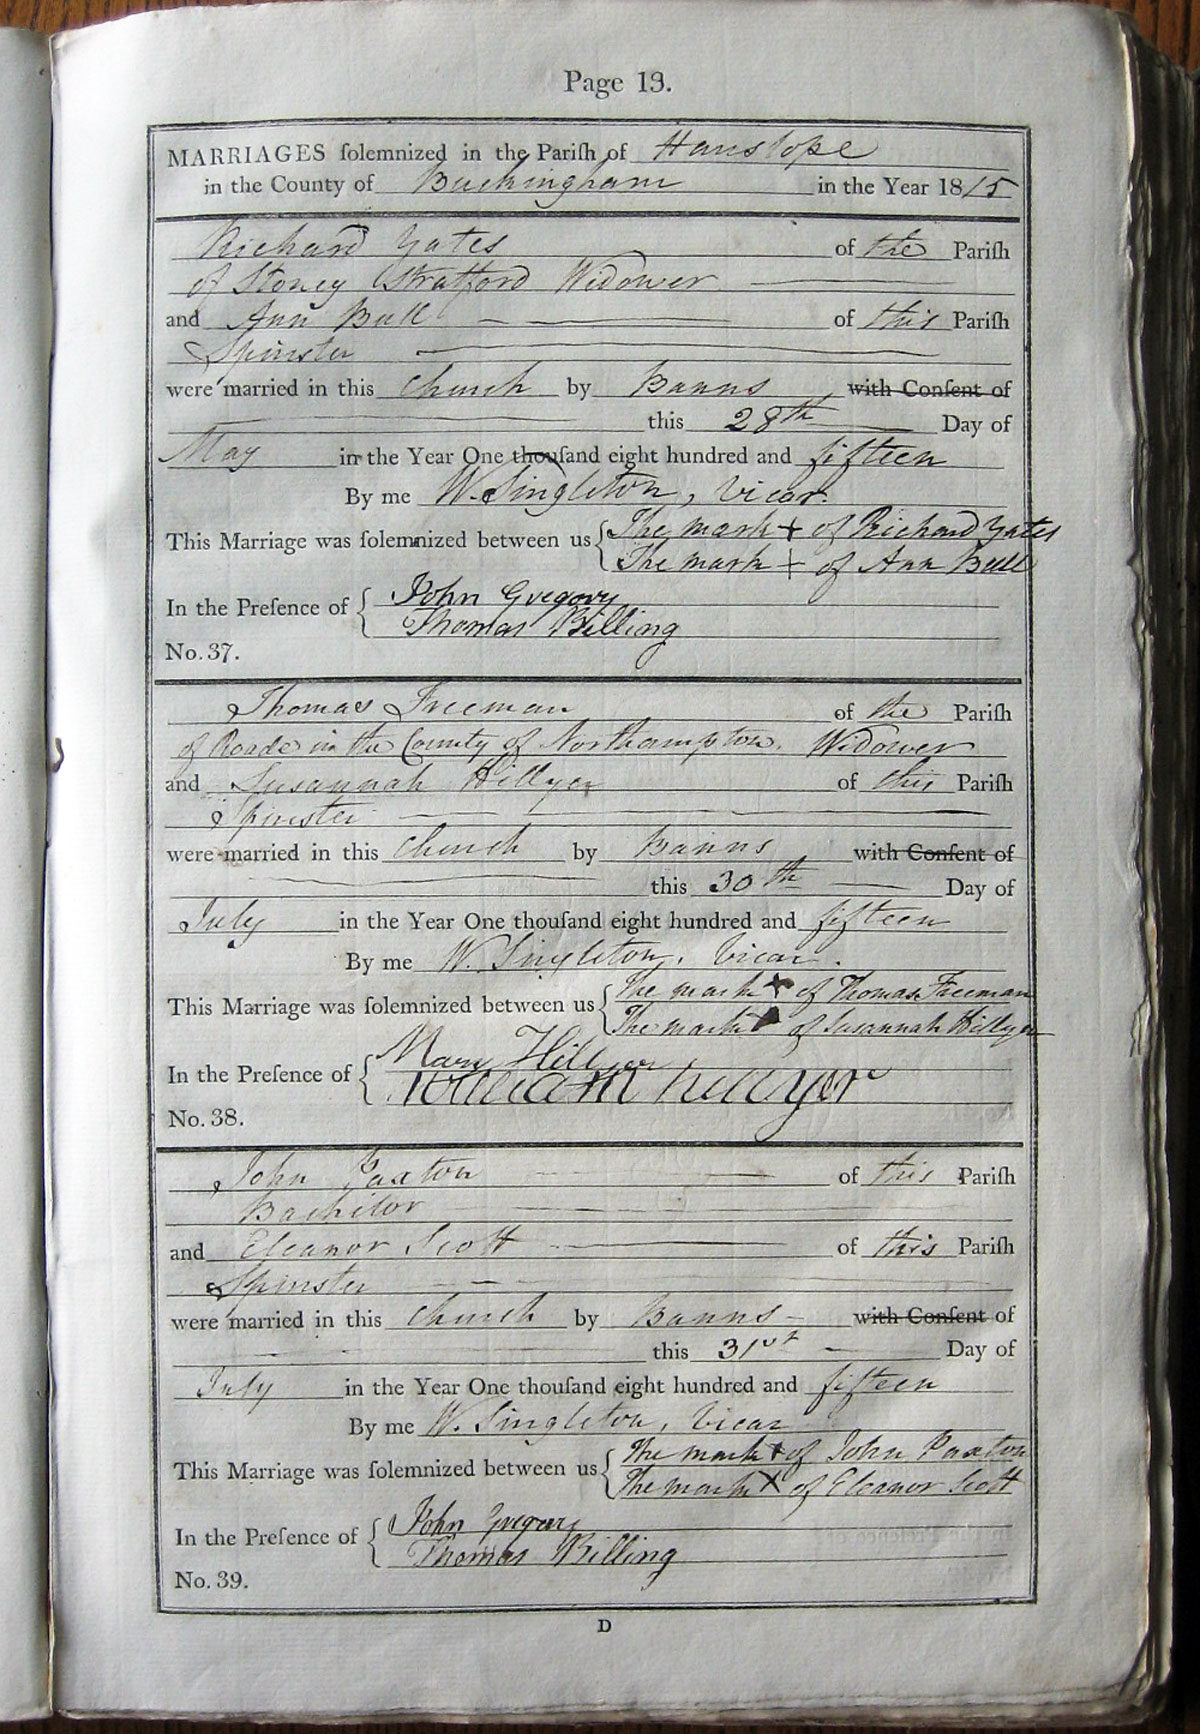 Page 13.
MARRIAGES ſolemnized in the Pariſh of Hanslope
in the County of Buckingham in the Year 1815
Richard Yates of the Pariſh
of Stoney Stratford Widower
and Ann Bull of this Pariſh
Spinster
were married in this Church by Banns with Conſent of
this 28th Day of
May in the Year One thouſand eight hundred and fifteen
By me W. Singleton, Vicar.
This Marriage was ſolemnized between us { The mark + of Richard Yates
The mark + of Ann Bull
In the Preſence of { John Gregory
Thomas Billing
No. 37.
Thomas Freeman of the Pariſh
of Roade in the County of Northampton. Widower
and Susannah Hillyer of this Pariſh
Spinster
were married in this Church by Banns with Conſent of
this 30th Day of
July in the Year One thouſand eight hundred and fifteen
By me W. Singleton, Vicar.
This Marriage was ſolemnized between us { The mark + of Thomas Freeman
The mark + of Susannah Hillyer
In the Preſence of { Mary Hillyer
William hillyer
No. 38.
John Paxton of this Pariſh
Bachelor
and Eleanor Scott of this Pariſh
Spinster
were married in this Church by Banns with Conſent of
this 31st Day of
July in the Year One thouſand eight hundred and fifteen
By me W. Singleton, Vicar
This Marriage was ſolemnized between us { The mark + of John Paxton
The mark X of Eleanor Scott
In the Preſence of { John Gregory
Thomas Billing
No. 39.
D